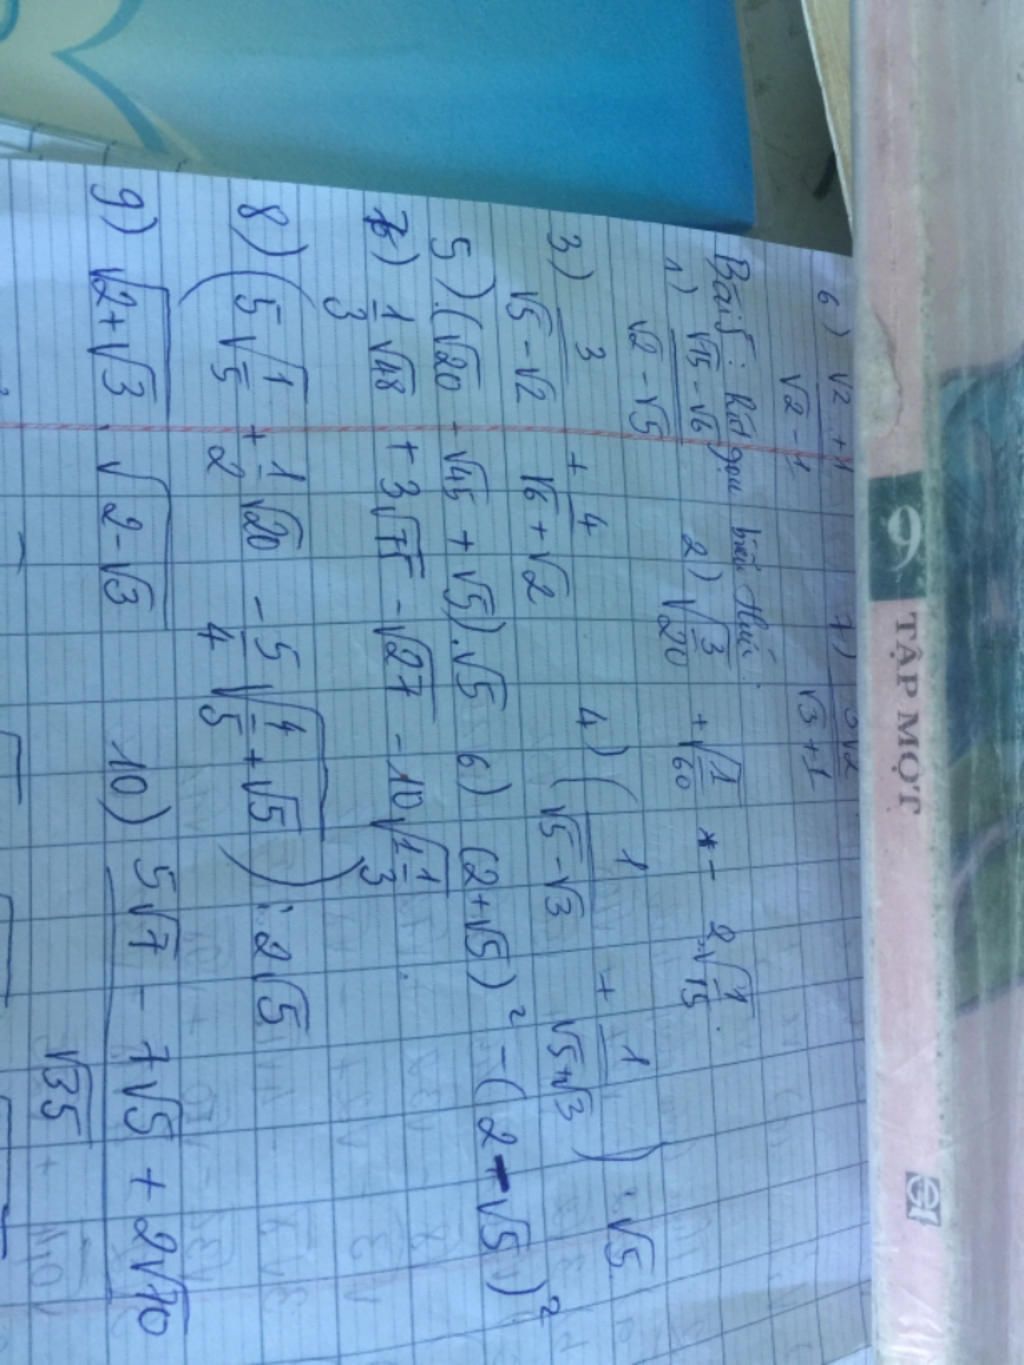 6) (√2 + 1)/(√2 - 1) 7) 3√2/(√3 + 1)
Bài 5: Rút gọn biểu thức:
1) (√15 - √6)/(√2 - √5) 2) √(3/20) + √(1/60) - 2√(1/15).
3) 3/(√5 - √2) + 4/(√6 + √2) 4) (1/(√5 - √3) + 1/(√5 + √3)) : √5
5) (√20 - √45 + √5).√5 6) (2 + √5)² - (2 + √5)²
7) 1/3 √48 + 3√75 - √27 - 10√(1 1/3).
8) (5√(1/5) + 1/2 √20 - 5/4 √(4/5 + √5)) : 2√5
9) √(2 + √3) . √(2 - √3) 10) (5√7 - 7√5 + 2√70)/√35
9
TẬP MỘT